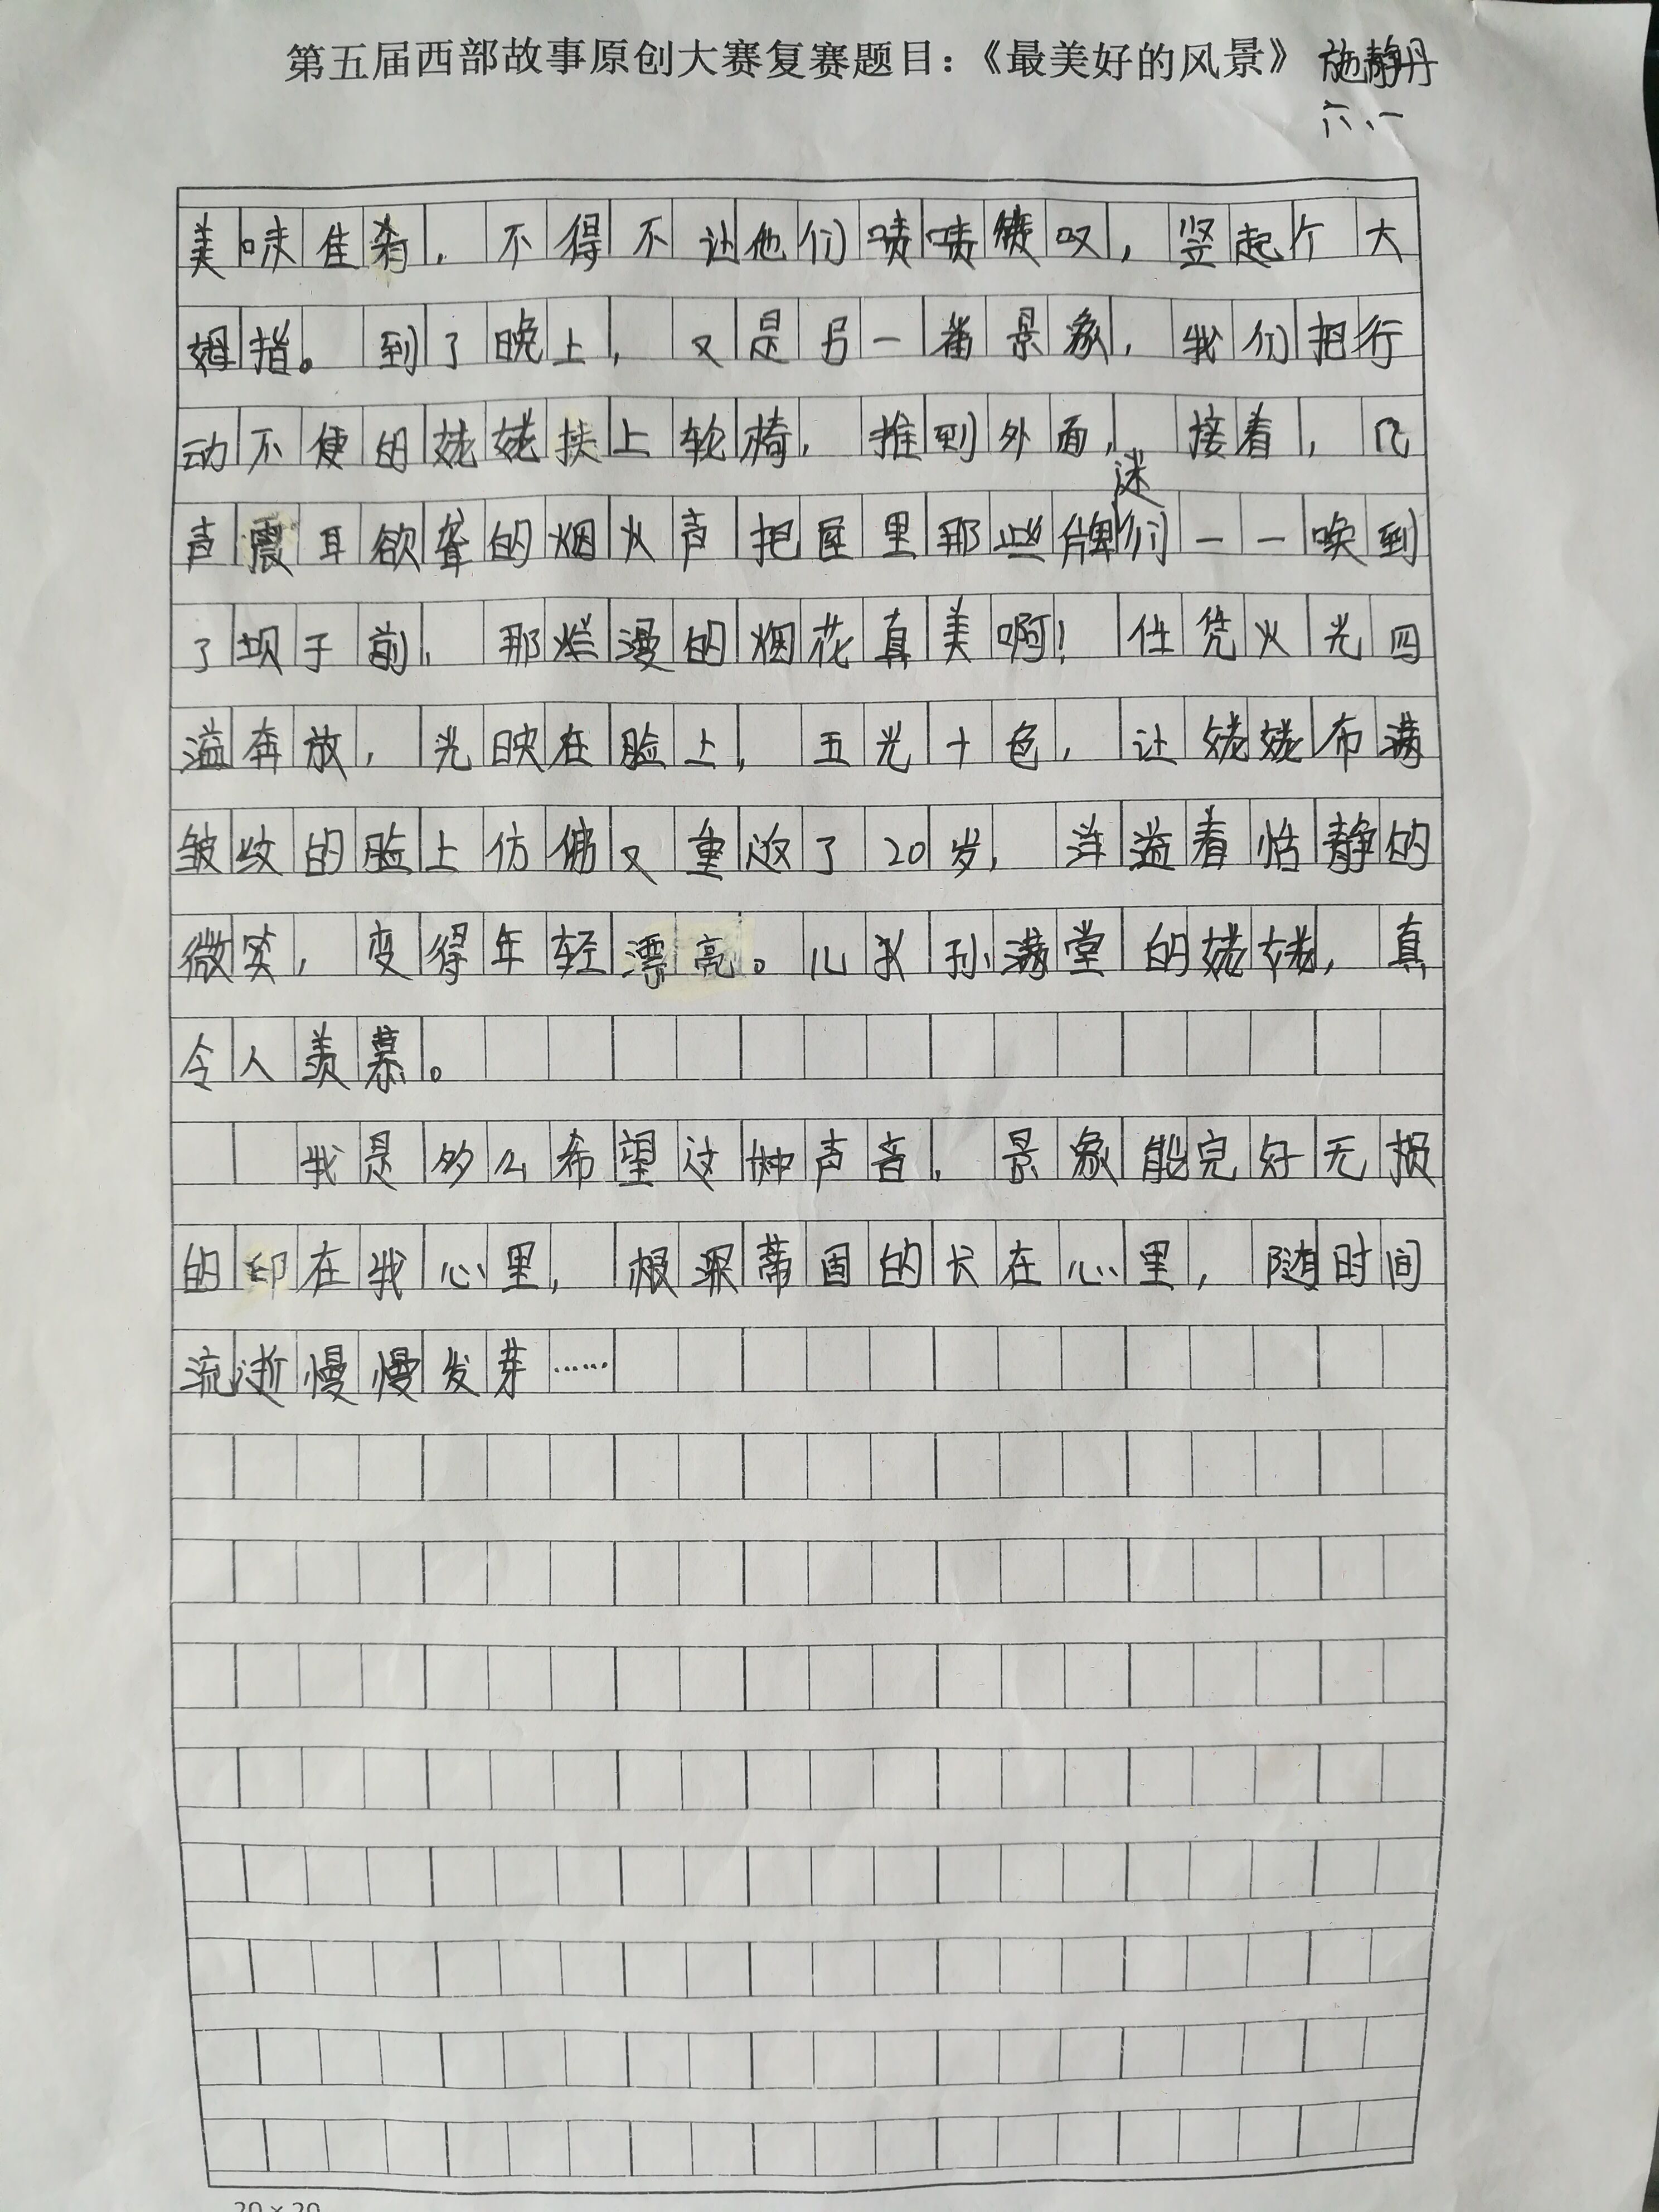 第五届西部故事原创大赛复赛题目：《最美好的风景》 施静丹
六、一
美味佳肴，不得不让他们啧啧赞叹，竖起个大
姆指。到了晚上，又是另一番景象，我们把行
动不便的姥姥扶上轮椅，推到外面，接着，几
声震耳欲聋的烟火声把屋里那些牌迷们一一唤到
了坝子前，那烂漫的烟花真美啊！任凭火光四
溢奔放，光映在脸上，五光十色，让姥姥布满
皱纹的脸上仿佛又重返了20岁，洋溢着恬静的
微笑，变得年轻漂亮。儿孙满堂的姥姥，真
令人羡慕。
我是多么希望这种声音，景象能完好无损
的印在我心里，根深蒂固的长在心里，随时间
流逝慢慢发芽……
20×20